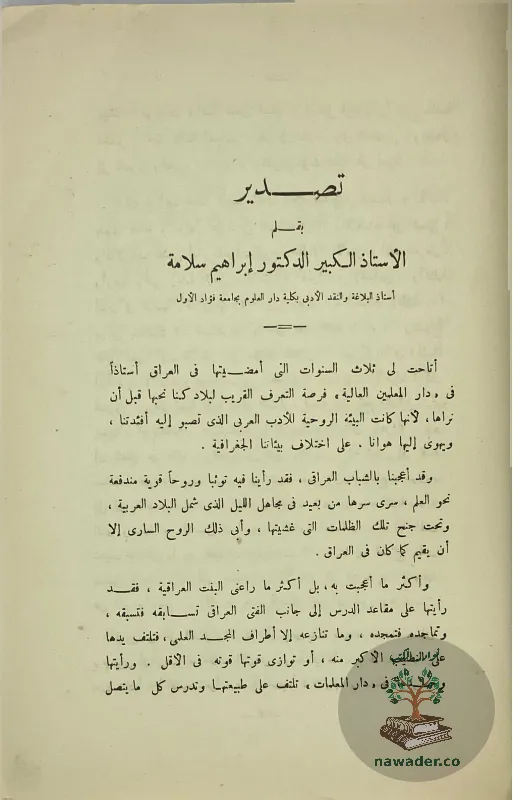 تصـــدير
بقـــلم
الأستاذ الكبير الدكتور إبراهيم سلامة
أستاذ البلاغة والنقد الأدبى بكلية دار العلوم بجامعة فؤاد الأول
أتاحت لى ثلاث السنوات التى أمضـيتها فى العراق أستاذاً
فى «دار المعلمين العالية» فرصة التعرف القريب لبلاد كنا نحبها قبل أن
نراها، لأنها كانت البيئة الروحية للأدب العربى الذى تصبو إليه أفئدتنا ،
ويهوى إليها هوانا . على اختلاف بيئاتنا الجغرافية .
وقد أعجبنا بالشباب العراقى ، فقد رأينا فيه توثبا وروحاً قوية مندفعة
نحو العلم ، سرى سرها من بعيد فى مجاهل الليل الذى شمل البلاد العربية ،
وتحت جنح تلك الظلمات التى غشيتها ، وأبى ذلك الروح السارى إلا
أن يقيم كما كان فى العراق .
وأكثر ما أعجبت به، بل أكثر ما راعنى البنت العراقية ، فقـد
رأيتها على مقاعد الدرس إلى جانب الفتى العراقى تسـابقه فتسبقه ،
وتماجده فتمجده ، وما تنازعه إلا أطراف المجـد العلمى ، فتلتف يدها
على الأكبر منه ، أو توازى قوتها قوته فى الأقل . ورأيتها
فى «دار المعلمات» تلتف على طبيعتهـا وتدرس كل ما يتصل
nawader.co